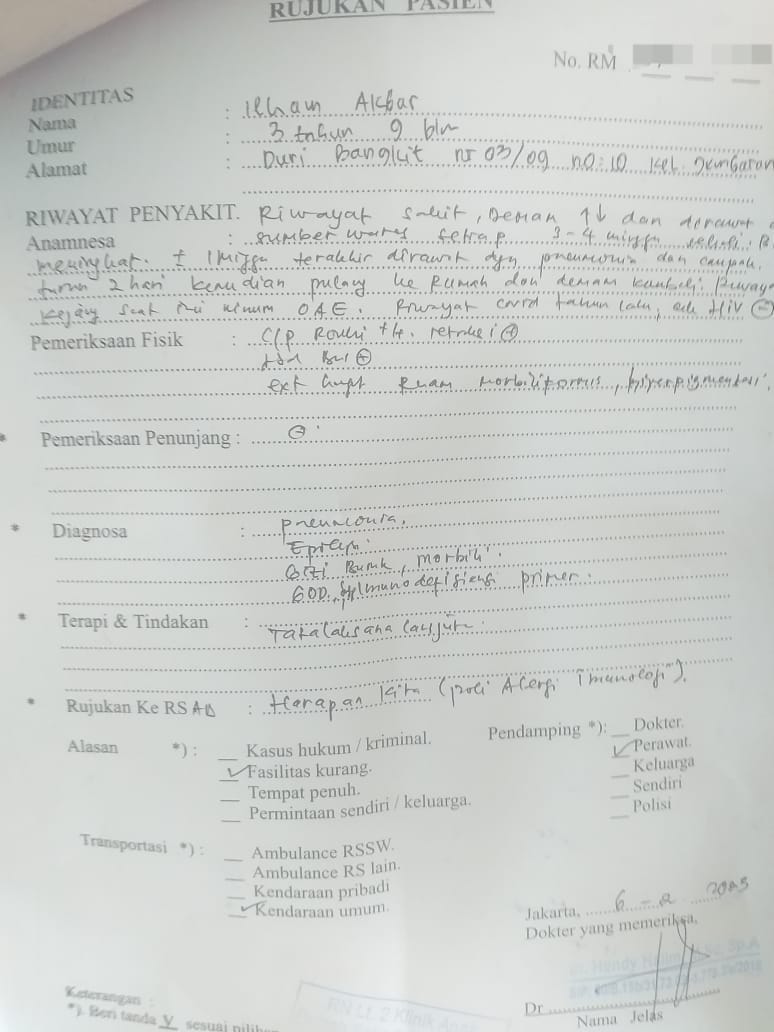 RUJUKAN PASIEN
No. RM
IDENTITAS
Nama : Ilham Akbar
Umur : 3 tahun 9 bln
Alamat : Duri Bangkit 03/09 no: 10 kel
RIWAYAT PENYAKIT. Riwayat sakit, Demam ↑↓ dan dirawat
Anamnesa : sumber waras setiap 3-4 minggu
meningkat. ± 1 minggu terakhir dirawat dgn pneumonia dan campak.
turun 2 hari kemudian pulang ke Rumah dan demam kembali. Riwaya
Kejang saat ini minum OAE. Riwayat covid tahun lalu, HIV ⊖
Pemeriksaan Fisik : C/p Ronchi +/+. retraksi ⊕
⊕
ext Ruam morbiliformis,
* Pemeriksaan Penunjang : ⊖
* Diagnosa : pneumonia.
Epilepsi
Gizi Buruk, morbili.
Imunodefisiensi primer.
* Terapi & Tindakan : Tatalaksana lanjut.
* Rujukan Ke RS AB : Harapan Kita (poli Alergi Imunologi).
Alasan *) : __ Kasus hukum / kriminal. Pendamping *): __ Dokter.
✓ Fasilitas kurang. ✓ Perawat.
__ Tempat penuh. __ Keluarga
__ Permintaan sendiri / keluarga. __ Sendiri
__ Polisi
Transportasi *) : __ Ambulance RSSW.
__ Ambulance RS lain.
__ Kendaraan pribadi
✓ Kendaraan umum.
Jakarta, 6 - 2 2023
Dokter yang memeriksa,
Dr
Nama Jelas
Keterangan :
*). Beri tanda V sesuai
RN Lt. 2 Klinik